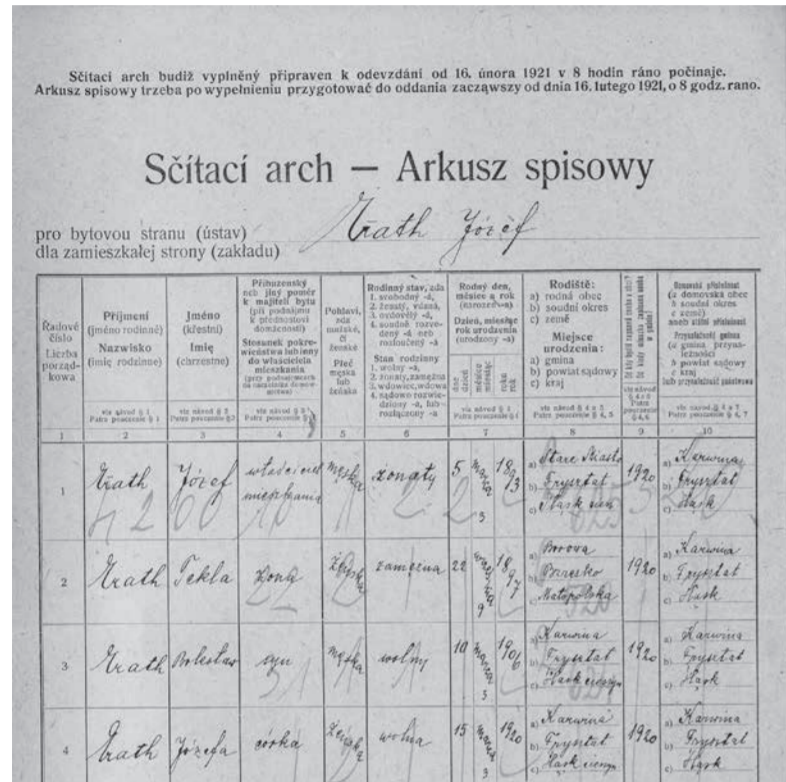 Sčítací arch budiž vyplněný připraven k odevzdání od 16. února 1921 v 8 hodin ráno počínaje.
Arkusz spisowy trzeba po wypełnieniu przygotować do oddania zacząwszy od dnia 16. lutego 1921, o 8 godz. rano.
Sčítací arch — Arkusz spisowy
pro bytovou stranu (ústav)
dla zamieszkałej strony (zakładu)
Józef
Řadové
číslo
Liczba
porząd-
kowa
Příjmení
(jméno rodinné)
Nazwisko
(imię rodzinne)
Jméno
(křestní)
Imię
(chrzestne)
Příbuzenský
neb jiný poměr
k majiteli bytu
(při podnájmu
k přednostovi
domácnosti)
Stosunek pokre-
wieństwa lub inny
do właściciela
mieszkania
Pohlaví,
zda
mužské,
či
ženské
Płeć
męska
lub
żeńska
Rodinný stav, zda
1. svobodný -á,
2. ženatý, vdaná,
3. ovdovělý -á,
4. soudně rozve-
dený -á neb
rozloučený -á
Stan rodzinny
1. wolny -a,
2. żonaty, zamężna
3. wdowiec, wdowa
4. sądowo rozwie-
dziony -a, lub
rozłączony -a
Rodný den,
měsíc a rok
(narozen -a)
Dzień, miesiąc
rok urodzenia
(urodzony -a)
dne
dzień
měsíce
miesiąc
roku
rok
Rodiště:
a) rodná obec
b) soudní okres
c) země
Miejsce
urodzenia:
a) gmina
b) powiat sądowy
c) kraj
Domovská příslušnost
(a domovská obec
b soudní okres
c země)
aneb státní příslušnost
Przynależność gminna
(a gmina przyna-
leżności
b powiat sądowy
c kraj
lub przynależność państwowa
1 2 3 4 5 6 7 8 9 10
1 Józef właściciel mieszkania męska żonaty 5 3 a) Stare Miasto b) Frysztat c) 1920 a) Karwina b) Frysztat c) Śląsk
2 Tekla żona żeńska zamężna 22 9 1897 a) Borova b) Brzesko c) Małopolska 1920 a) Karwina b) Frysztat c) Śląsk
3 Bolesław syn męska wolny 10 3 a) Karwina b) Frysztat c) Śląsk 1920 a) Karwina b) Frysztat c) Śląsk
4 Józefa córka żeńska wolna 15 3 1920 a) Karwina b) Frysztat c) Śląsk 1920 a) Karwina b) Frysztat c) Śląsk